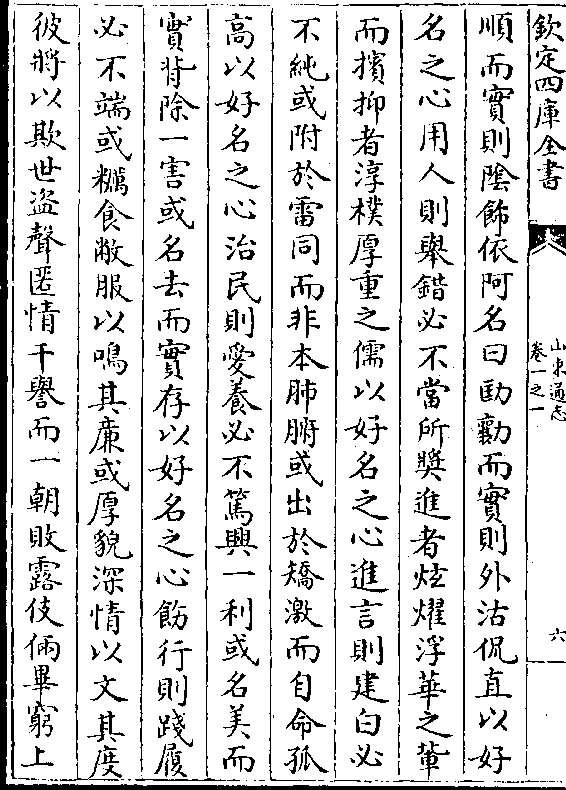 欽定四庫全書
山東通志
卷一之一
六
順而實則陰飾依阿名曰劻勷而實則外沽侃直以好
名之心用人則舉錯必不當所獎進者炫燿浮華之輩
而擯抑者淳樸厚重之儒以好名之心進言則建白必
不純或附於雷同而非本肺腑或出於矯激而自命孤
高以好名之心治民則愛養必不篤興一利或名美而
實背除一害或名去而實存以好名之心飭行則踐履
必不端或糲食敝服以鳴其亷或厚貌深情以文其度
彼將以欺世盗聲匿情干譽而一朝敗露伎倆畢窮上